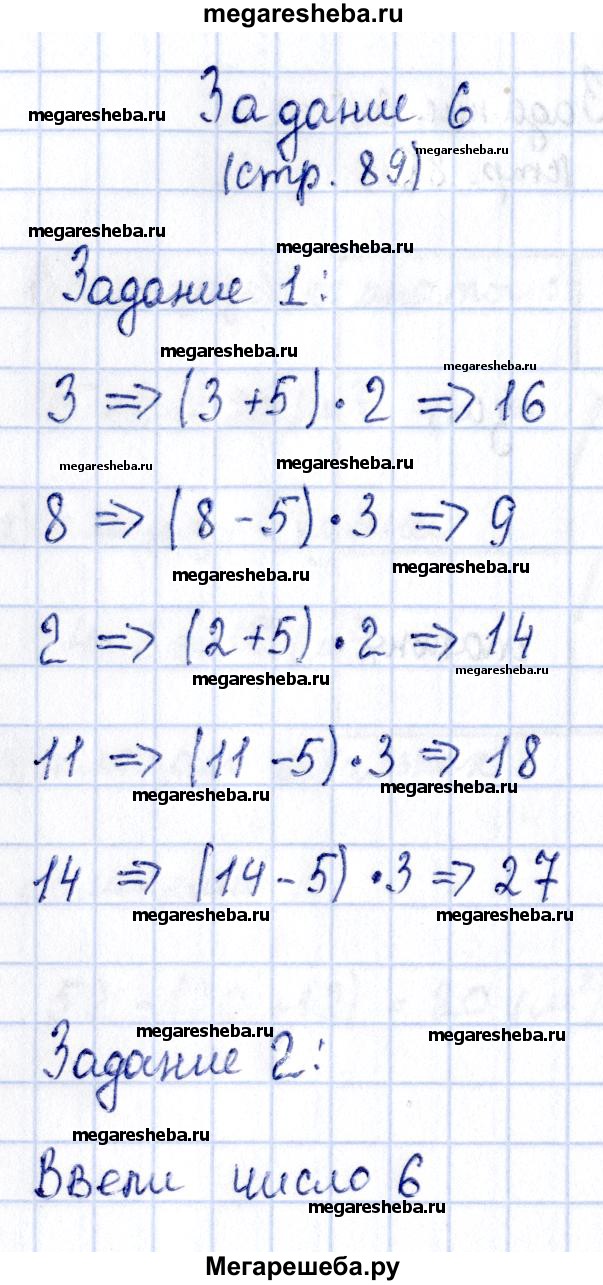 megaresheba.ru
Задание 6
megaresheba.ru
(стр. 89)
megaresheba.ru
megaresheba.ru
megaresheba.ru
Задание 1:
megaresheba.ru
megaresheba.ru
3 => (3+5)·2 => 16
megaresheba.ru
megaresheba.ru
8 => (8-5)·3 => 9
megaresheba.ru
megaresheba.ru
2 => (2+5)·2 => 14
megaresheba.ru
megaresheba.ru
11 => (11-5)·3 => 18
megaresheba.ru
megaresheba.ru
14 => (14-5)·3 => 27
megaresheba.ru
megaresheba.ru
megaresheba.ru
megaresheba.ru
Задание 2:
megaresheba.ru
Ввели число 6
megaresheba.ru
Мегарешеба.ру